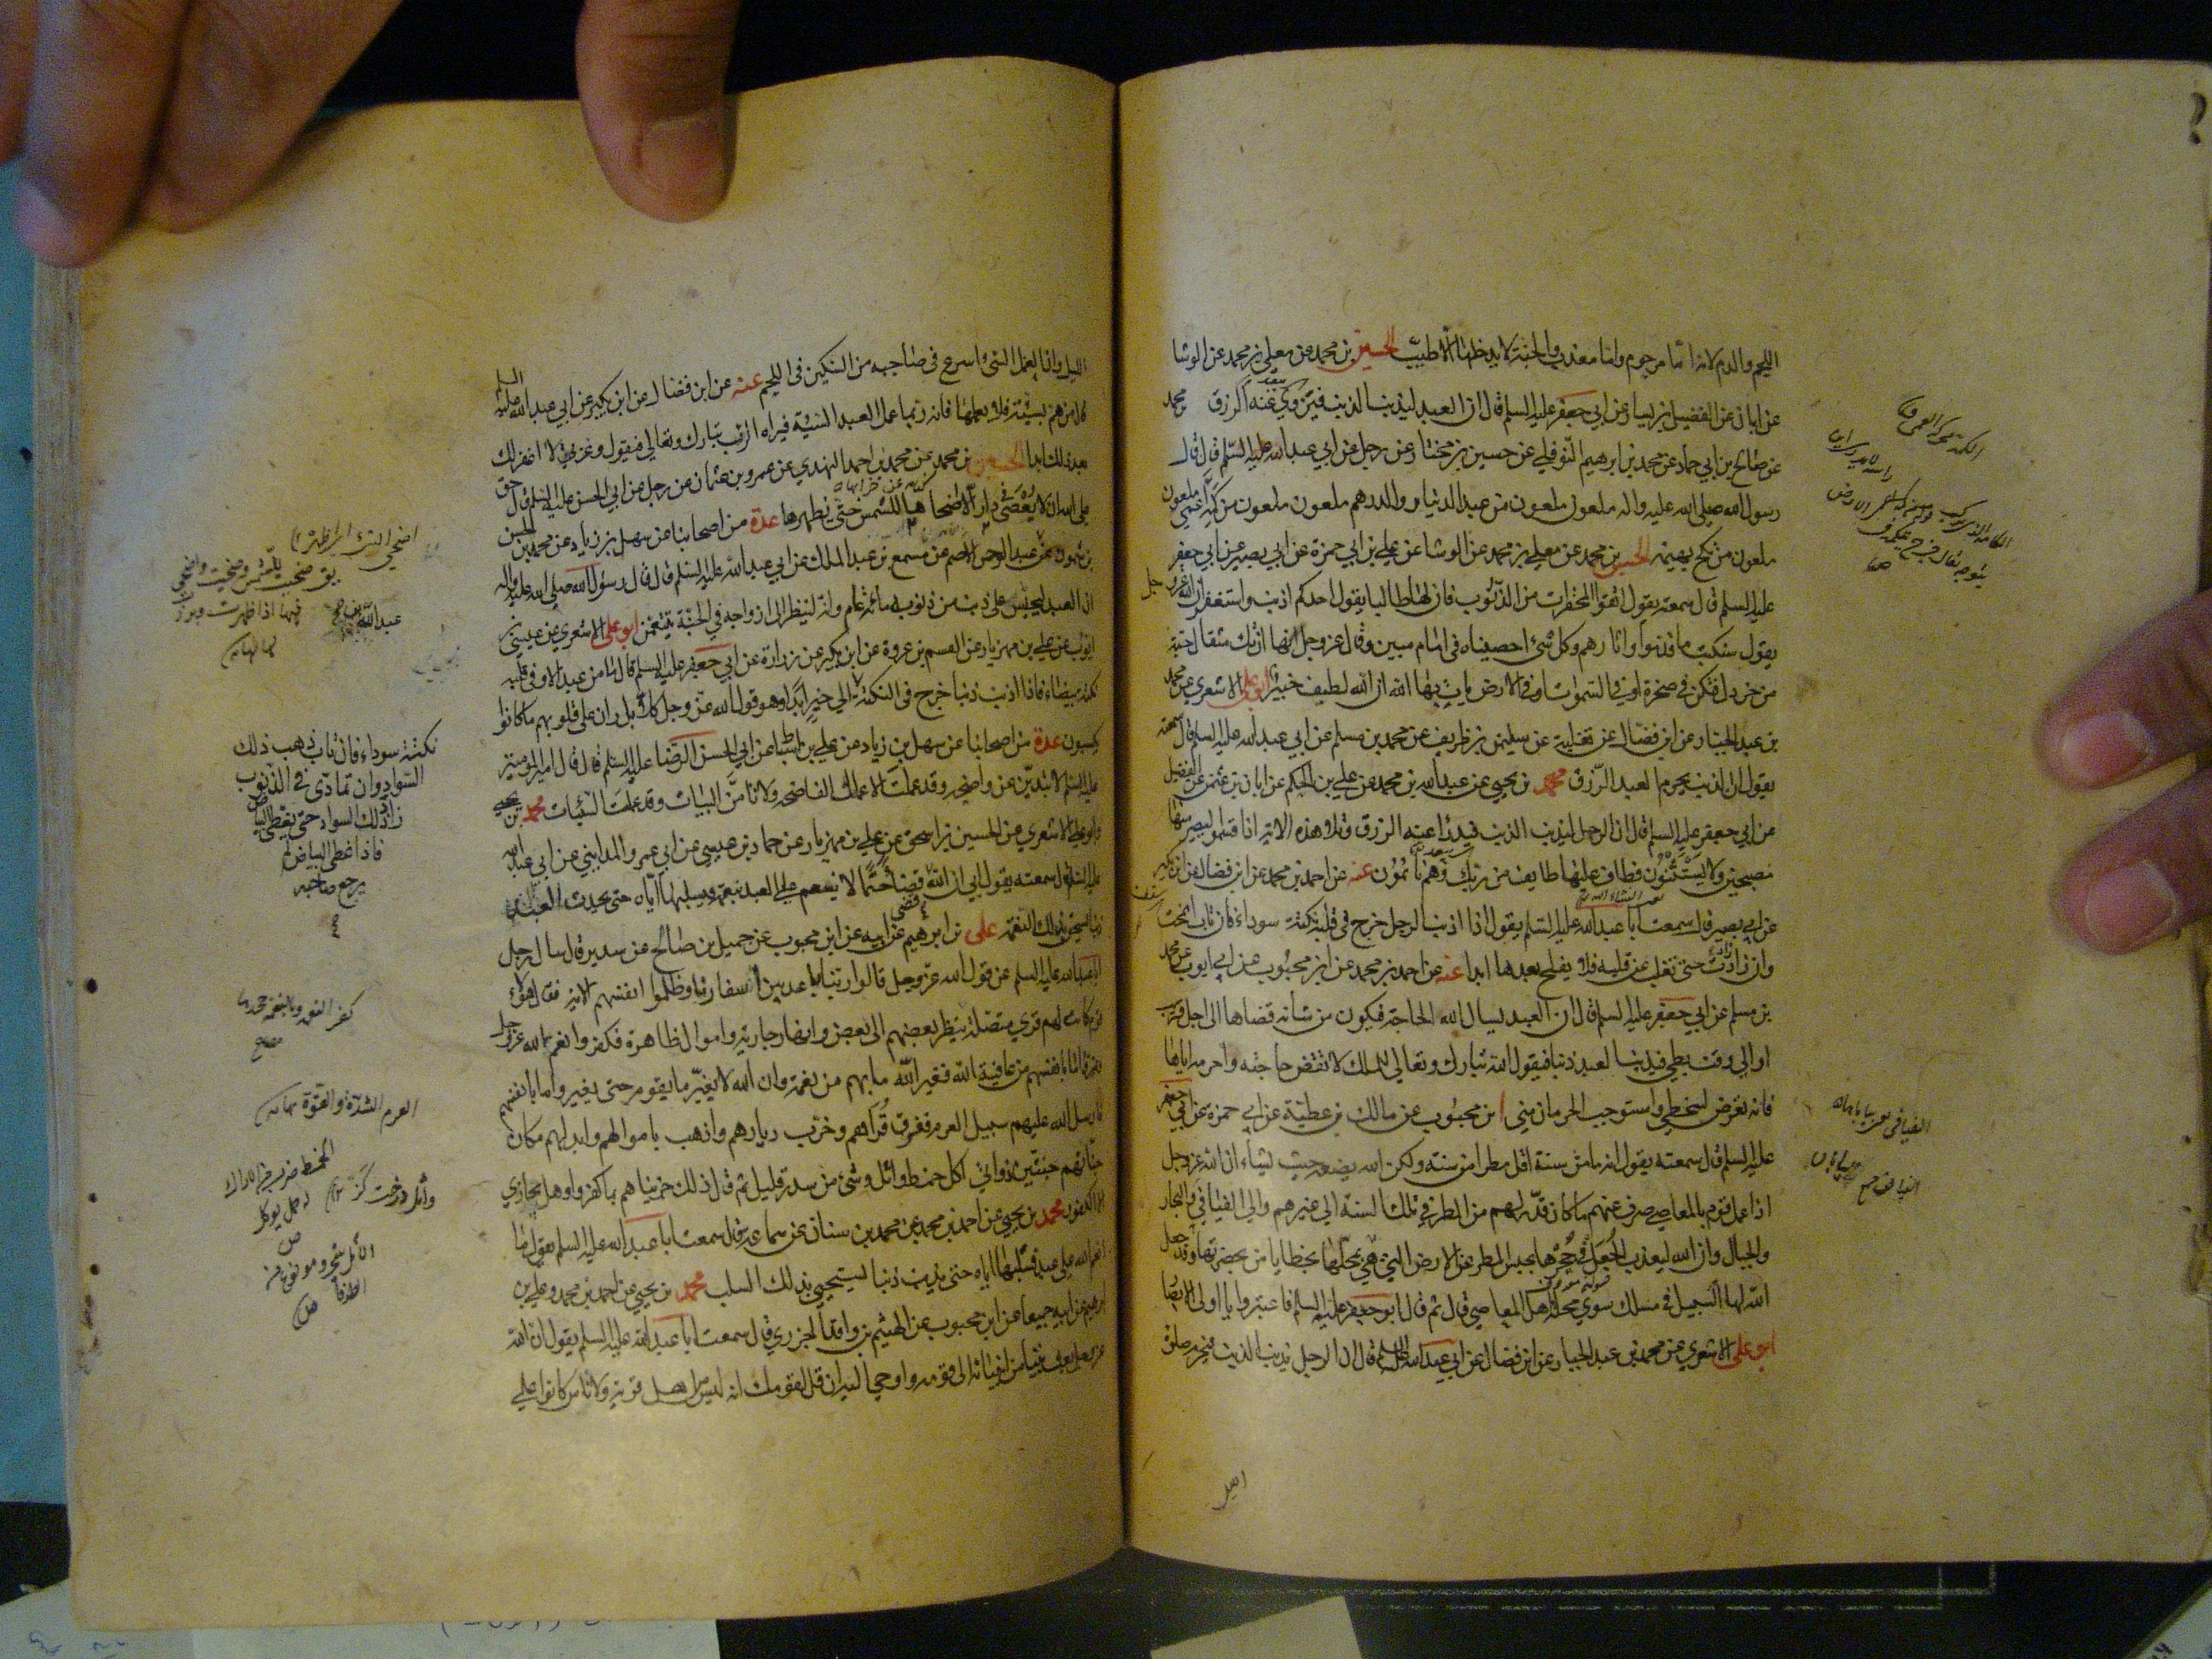 اللحم والدم لانه اما مرحوم واما معذب والجنة لا يدخلها الا طيب الحسين بن محمد عن معلى بن محمد عن الوشا
عن ابان عن الفضيل بن يسار عن ابي جعفر عليه السلم قال ان العبد ليذنب الذنب فيزوى عنه الرزق
عن صالح بن ابي حماد عن محمد بن ابرهيم النوفلي عن حسين بن مختار عن رجل عن ابي عبد الله عليه السلم قال قال
رسول الله صلى الله عليه واله ملعون ملعون من عبد الدنيار والدرهم ملعون ملعون من كمه اعمى ملعون
ملعون من نكح بهيمة الحسين بن محمد عن معلى بن محمد عن الوشا عن علي بن ابي حمزة عن ابي بصير عن ابي جعفر
عليه السلم قال سمعته يقول اتقوا المحقرات من الذنوب فان لها طالبا يقول احدكم اذنب واستغفر ان الله عز وجل
يقول سنكتب ما قدموا واثارهم وكل شئ احصيناه في امام مبين وقال عز وجل انها ان تك مثقال حبة
من خردل فتكن في صخرة او في السموات او في الارض يات بها الله ان الله لطيف خبير ابو علي الاشعري عن محمد
بن عبد الجبار عن ابن فضال عن ثعلبة عن سليمن بن ظريف عن محمد بن مسلم عن ابي عبد الله عليه السلم قال سمعته
يقول ان الذنب يحرم العبد الرزق محمد بن يحيى عن عبد الله بن محمد عن علي بن الحكم عن ابان بن عثمن عن الفضيل
عن ابي جعفر عليه السلم قال ان الرجل ليذنب الذنب فيدرا عنه الرزق وتلا هذه الاية اذ اقسموا ليصرمنها
مصبحين ولا يستثنون فطاف عليها طايف من ربك وهم نائمون عنه عن احمد بن محمد عن ابن فضال عن ابن بكير
عن ابي بصير قال سمعت ابا عبد الله عليه السلم يقول اذا اذنب الرجل خرج في قلبه نكتة سوداء فان تاب انمحت
وان زاد زادت حتى تغلب على قلبه فلا يفلح بعدها ابدا عنه عن احمد بن محمد عن ابن محبوب عن ابي ايوب عن محمد
بن مسلم عن ابي جعفر عليه السلم قال ان العبد يسال الله الحاجة فيكون من شأنه قضاها الى اجل قريب
او الى وقت بطي فيذنب العبد ذنبا فيقول الله تبارك وتعالى للملك لا تقض حاجته واحرمه اياها
فانه تعرض لسخطي واستوجب الحرمان مني ابن محبوب عن مالك بن عطية عن ابي حمزة عن ابي جعفر
عليه السلم قال سمعته يقول انه ما من سنة اقل مطرا من سنة ولكن الله يضعه حيث يشاء ان الله عز وجل
اذا عمل قوم بالمعاصي صرف عنهم ما كان قدر لهم من المطر في تلك السنة الى غيرهم والى الفيافي والبحار
والجبال وان الله ليعذب الجعل في جحرها بحبس المطر عن الارض التي هي بمحلها بخطايا من بحضرتها وقد جعل
الله لها السبيل في مسلك سوى محلة اهل المعاصي قال ثم قال ابو جعفر عليه السلم فاعتبروا يا اولي الابصار
ابو علي الاشعري عن محمد بن عبد الجبار عن ابن فضال عن ابي عبد الله عليه السلم قال ان الرجل يذنب الذنب فيحرم صلوة
الليل وان العمل السئ اسرع في صاحبه من السكين في اللحم عنه عن ابن فضال عن ابن بكير عن ابي عبد الله عليه السلم
قال من هم بسيئة فلا يعملها فانه ربما عمل العبد السيئة فيراه الرب تبارك وتعالى فيقول وعزتي لا اغفر لك
بعد ذلك ابدا الحسين بن محمد عن محمد بن احمد النهدي عن عمرو بن عثمان عن رجل عن ابي الحسن عليه السلم قال حق
على الله ان لا يعصى في دار الا اضحاها للشمس حتى تطهرها عدة من اصحابنا عن سهل بن زياد عن محمد بن الحسن
بن شمون عن عبد الرحمن الاصم عن مسمع بن عبد الملك عن ابي عبد الله عليه السلم قال قال رسول الله صلى الله عليه واله
ان العبد ليحبس على ذنب من ذنوبه مائة عام وانه لينظر الى ازواجه في الجنة يتنعمن ابو علي الاشعري عن عيسى بن
ايوب عن علي بن مهزيار عن القسم بن عروة عن ابن بكير عن زرارة عن ابي جعفر عليه السلم قال ما من عبد الا وفي قلبه
نكتة بيضاء فاذا اذنب ذنبا خرج في النكتة الى خير ابدا وهو قول الله عز وجل كلا بل ران على قلوبهم ما كانوا
يكسبون عدة من اصحابنا عن سهل بن زياد عن علي بن اسباط عن ابي الحسن الرضا عليه السلم قال قال امير المؤمنين
عليه السلم لا تبدين عن واضحة وقد عملت الاعمال الفاضحة ولا تامن البيات وقد عملت السيئات محمد بن يحيى
وابو علي الاشعري عن الحسين بن اسحق عن علي بن مهزيار عن حماد بن عيسى عن ابي عمرو المدايني عن ابي عبد الله
عليه السلم قال سمعته يقول ان الله قضى قضاء حتما لا ينعم على العبد بنعمة فيسلبها اياه حتى يحدث العبد
ذنبا يستحق بذلك النقمة علي بن ابرهيم عن ابيه عن ابن محبوب عن جميل بن صالح عن سدير قال سال رجل
ابا عبد الله عليه السلم عن قول الله عز وجل قالوا ربنا باعد بين اسفارنا وظلموا انفسهم الاية فقال هؤلاء
قوم كانت لهم قرى متصلة ينظر بعضهم الى بعض وانهار جارية واموال ظاهرة فكفروا نعم الله عز وجل
وغيروا ما بانفسهم من عافية الله فغير الله ما بهم من نعمة وان الله لا يغير ما بقوم حتى يغيروا ما بانفسهم
فارسل الله عليهم سيل العرم ففرق قراهم وخرب ديارهم واذهب باموالهم وابدلهم مكان
جناتهم جنتين ذواتي اكل خمط واثل وشئ من سدر قليل ثم قال ذلك جزيناهم بما كفروا وهل نجازي
الا الكفور محمد بن يحيى عن احمد بن محمد عن محمد بن سنان عن سماعة قال سمعت ابا عبد الله عليه السلم يقول ما
انعم الله على عبد فسلبها اياه حتى يذنب ذنبا يستحق بذلك السلب محمد بن يحيى عن احمد بن محمد وعلي بن
ابرهيم عن ابيه جميعا عن ابن محبوب عن الهيثم بن واقد الجزري قال سمعت ابا عبد الله عليه السلم يقول ان الله
عز وجل بعث نبيا من انبيائه الى قومه واوحى اليه ان قل لقومك انه ليس من اهل قرية ولا ناس كانوا على
نكتة سوداء فان تاب ذهب ذلك
السواد وان تمادى في الذنوب
زاد ذلك السواد حتى يغطي البياض
فاذا غطى البياض لم
يرجع صاحبه
العرم الشدة والقوة